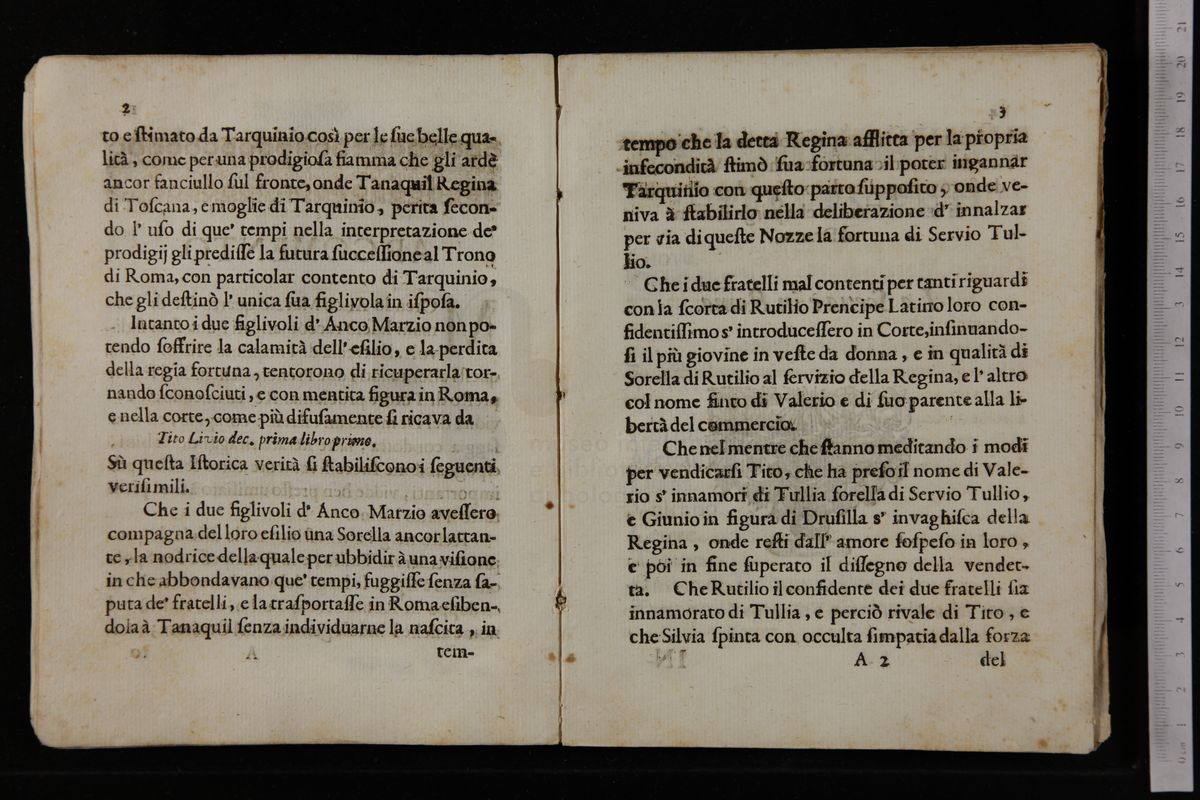 2
to e ſtimato da Tarquinio così per le ſue belle qua-
lità, come per una prodigioſa fiamma che gli ardè
ancor fanciullo ſul fronte, onde Tanaquil Regina
di Toſcana, e moglie di Tarquinio, perita ſecon-
do l' uſo di que' tempi nella interpretazione de'
prodigij gli prediſſe la futura ſucceſſione al Trono
di Roma, con particolar contento di Tarquinio,
che gli deſtinò l' unica ſua figlivola in iſpoſa.
Intanto i due figlivoli d' Anco Marzio non po-
tendo ſoffrire la calamità dell' eſilio, e la perdita
della regia fortuna, tentorono di ricuperarla tor-
nando ſconoſciuti, e con mentita figura in Roma,
e nella corte, come più difuſamente ſi ricava da
Tito Livio dec. prima libro primo.
Sù queſta Iſtorica verità ſi ſtabiliſcono i ſeguenti
veriſimili.
Che i due figlivoli d' Anco Marzio aveſſero
compagna del loro eſilio una Sorella ancor lattan-
te, la nodrice della quale per ubbidir à una viſione
in che abbondavano que' tempi, fuggiſſe ſenza ſa-
puta de' fratelli, e la traſportaſſe in Roma eſiben-
dola à Tanaquil ſenza individuarne la naſcita, in
tem-
3
tempo che la detta Regina afflitta per la propria
infecondità ſtimò ſua fortuna il poter ingannar
Tarquinio con queſto parto ſuppoſito, onde ve-
niva à ſtabilirlo nella deliberazione d' innalzar
per via di queſte Nozze la fortuna di Servio Tul-
lio.
Che i due fratelli mal contenti per tanti riguardi
con la ſcorta di Rutilio Prencipe Latino loro con-
fidentiſſimo s' introduceſſero in Corte, inſinuando-
ſi il più giovine in veſte da donna, e in qualità di
Sorella di Rutilio al ſervizio della Regina, e l' altro
col nome finto di Valerio e di ſuo parente alla li-
bertà del commercio.
Che nel mentre che ſtanno meditando i modi
per vendicarſi Tito, che ha preſo il nome di Vale-
rio s' innamori di Tullia ſorella di Servio Tullio,
e Giunio in figura di Druſilla s' invaghiſca della
Regina, onde reſti dall' amore ſoſpeſo in loro,
e poi in fine ſuperato il diſſegno della vendet-
ta. Che Rutilio il confidente dei due fratelli ſia
innamorato di Tullia, e perciò rivale di Tito, e
che Silvia ſpinta con occulta ſimpatia dalla forza
A 2 del